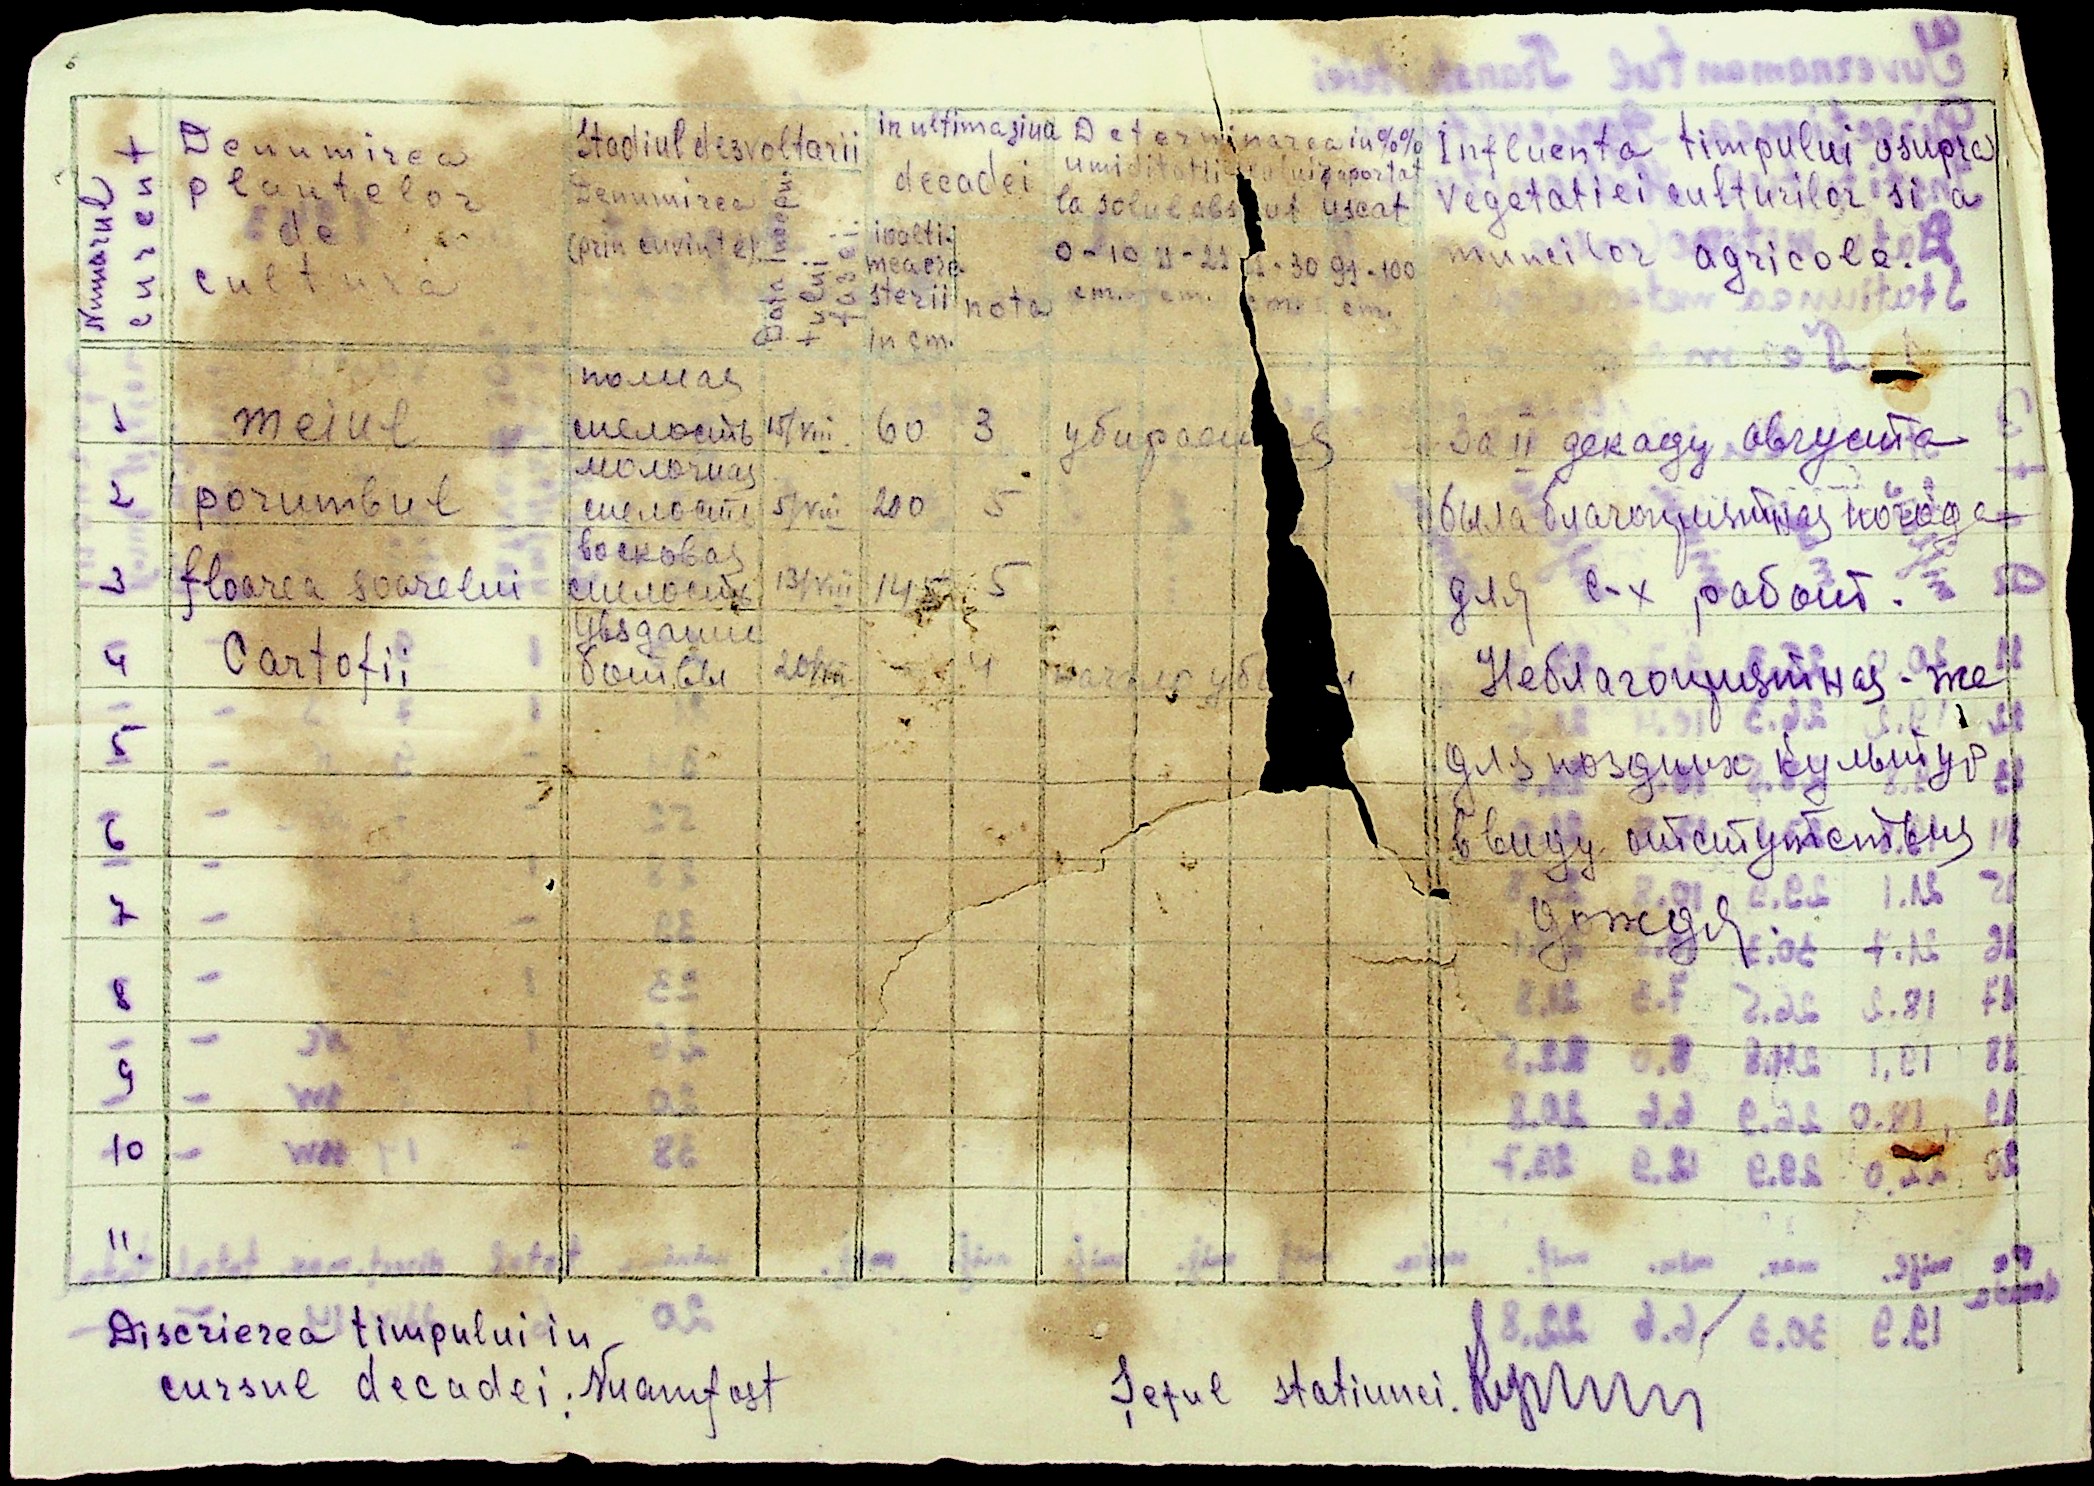 6
Numarul curent
Denumirea plantelor de cultura
Stadiul desvoltarii
Denumirea (prin cuvinte)
Data
in ultima ziua decadei
inalti-
mea cre
sterii
in cm.
nota
Determinarea in %%
umiditatii raportat
la solul uscat
0-10 cm. 11-21 cm. -30 cm. 91-100 cm.
Influenta timpului asupra
vegetatiei culturilor si a
muncilor agricole.
1 meiul полная спелость 15/VIII. 60 3
2 porumbul молочная спелость 5/VIII 200 5
3 floarea soarelui восковая спелость 13/VIII 145 5
4 Cartofii ботвы 20/VIII - 4
5
6
7
8
9
10
11.
За II декаду августа
была благоприятная погода
для с-х работ.
Неблагоприятная-же
для поздних культур
ввиду отсутствия
дождя.
Discrierea timpului in
cursul decadei: Nu am fost
Șeful statiunei.